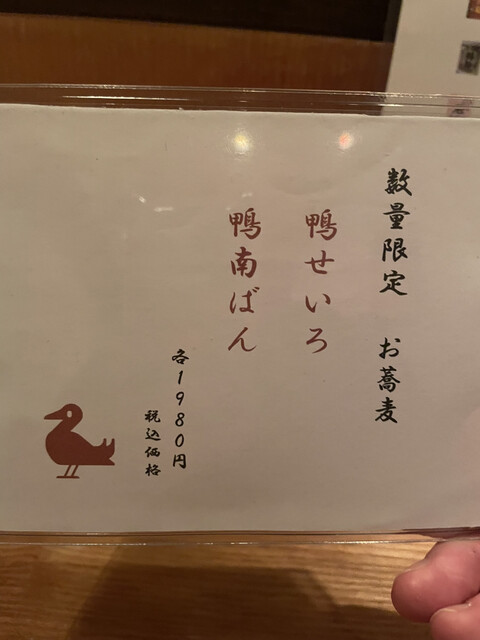 数量限定 お蕎麦
鴨せいろ
鴨南ばん
各1980円
税込価格